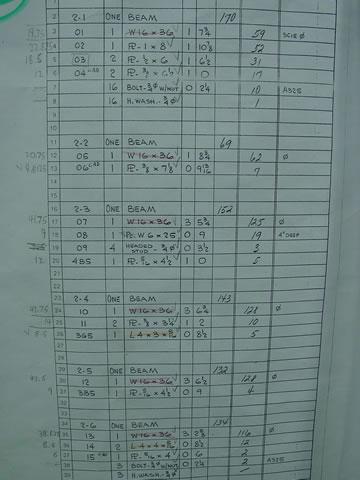 2 2-1 ONE BEAM 170
3 19.75 01 1 W16×36 1 7 3/4 59 SCIB Ø
4 02 1 PL-1×8 1 10 1/8 52
5 18.5 03 2 PL-1/2×6 1 6 1/2 31
6 12 04 2 1 0 17
7 16 BOLT-3/4Ø W/NUT 0 2 1/4 10 A325
8 16 H.WASH.-3/4Ø 1
9
10
11 2-2 ONE BEAM 69
12 20.75 05 1 W16×36 1 8 3/4 62 Ø
13 06 1 PL-3/8×7 1/8 0 9 13/16 7
14
15
16 2-3 ONE BEAM 152
17 41.75 07 1 W16×36 3 5 3/4 125 Ø
18 9 08 1 W6×25 0 9 19 4" DEEP
19 09 4 HEADED STUD-3/4Ø 0 3 1/2 3
20 12 4B5 1 PL-5/16×4 1/2 1 0 5
21
22
23 2-4 ONE BEAM 143
24 10 1 W16×36 3 6 3/4 128 Ø
25 11 2 PL-3/8×3 1/4 1 2 10
26 8.5 365 1 L4×3×5/16 0 8 1/2 5
28
29 2-5 ONE BEAM 132
30 12 1 W16×36 3 6 1/2 128 Ø
31 9 3B5 1 PL-5/16×4 1/2 0 9 4
34 2-6 ONE BEAM 134
35 13 1 W16×36 3 2 116 Ø
36 14 2 L4×4 0 8 1/2 12
37 6 15 1 PL-5/16×4 0 6 2
38 3 BOLT-3/4Ø W/NUT 0 2 2 A325
39 3 H.WASH-3/4Ø